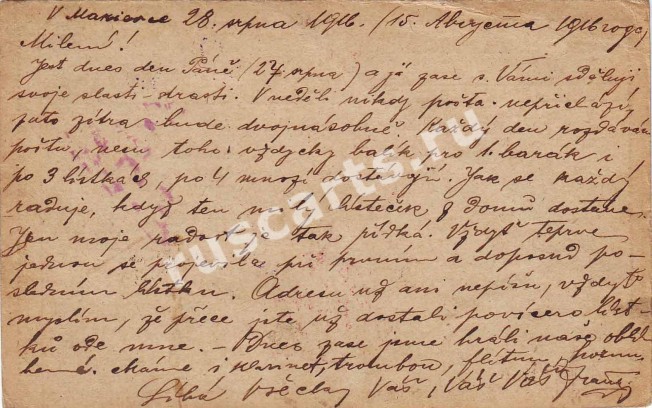 V 28. srpna 1916. (15. Августа 1916 года)
Milená!
Jest dnes den Páně (27 srpna) a já zase s Vámi sděluji
svoje slasti-drasti. V neděli nikdy pošta nepřichází
zato zítra bude dvojnásobně. Každý den rozdávám
poštu, není toho vždycky balík pro 1. barák i
po 3 lístkách, po 4 mnozí dostávají. Jak se každý
raduje, když ten lísteček z domů dostane.
Jen moje radost tak řídká. Vždyť teprve
jednou se projevila při prvním a doposud po-
sledním lístku. Adresu už ani nepíšu, vždyť
myslím, že přece jste už dostali povícero líst-
ků ode mne. – Dnes zase jsme hráli naše oblí-
bené. Máme i klarinet, trombon, flétnu,
Líbá Všecky Váš, Váš Váš Franc
ruscarts.ru